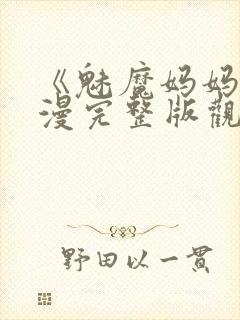 《魅魔妈妈
漫完整版觀
野田以一贯